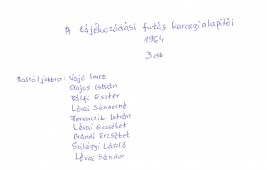 A tájékozódási futás karcagi alapítói
1964
3. db
Balról jobbra: Vajó Imre
Major István
Pálfi Eszter
Lévai Sándorné
Ferenczik István
Lévai Erzsébet
Mándi Erzsébet
Szilágyi László
Lévai Sándor